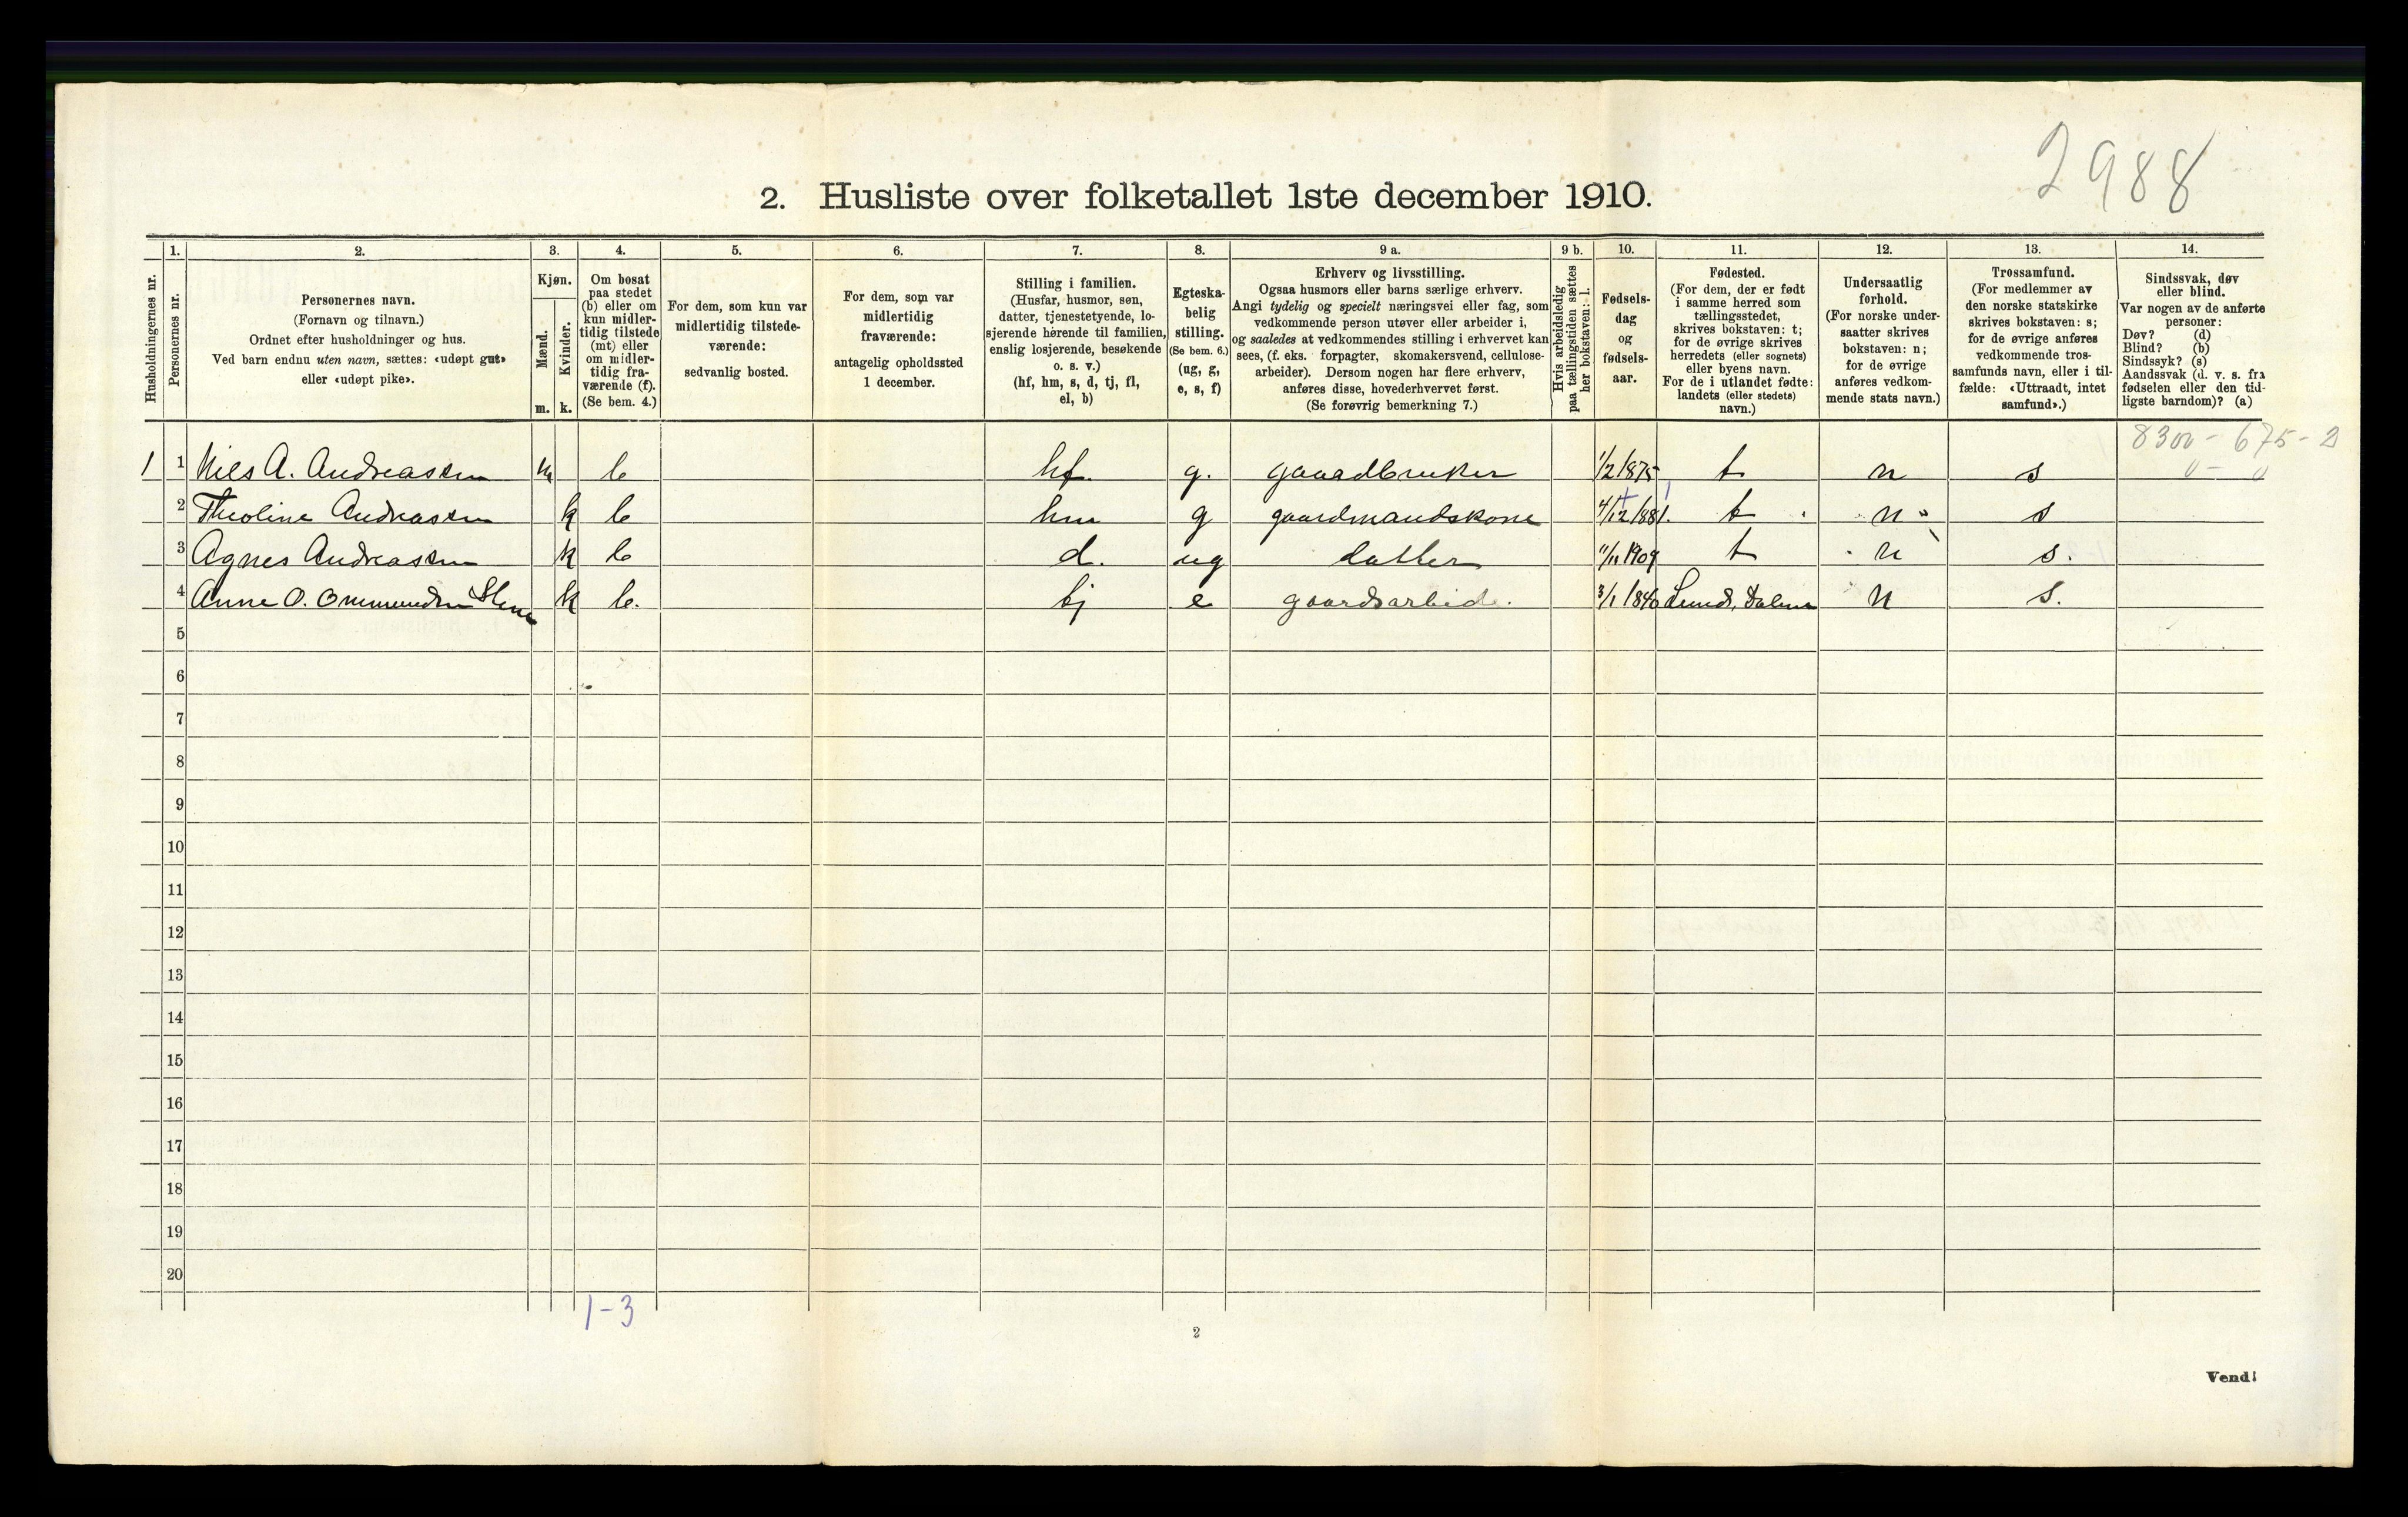 2988
2. Husliste over folketallet 1ste december 1910.
1. 2. 3. 4. 5. 6. 7. 8. 9 a. 9 b. 10. 11. 12. 13. 14.
Husholdningernes nr.
Personernes nr.
Personernes navn.
(Fornavn og tilnavn.)
Ordnet efter husholdninger og hus.
Ved barn endnu uten navn, sættes: «udøpt gut»
eller «udøpt pike».
Kjøn.
Mænd.
Kvinder.
m. k.
Om bosat
paa stedet
(b) eller om
kun midler-
tidig tilstede
(mt) eller
om midler-
tidig fra-
værende (f).
(Se bem. 4.)
For dem, som kun var
midlertidig tilstede-
værende:
sedvanlig bosted.
For dem, som var
midlertidig
fraværende:
antagelig opholdssted
1 december.
Stilling i familien.
(Husfar, husmor, søn,
datter, tjenestetyende, lo-
sjerende hørende til familien,
enslig losjerende, besøkende
o. s. v.)
(hf, hm, s, d, tj, fl,
el, b)
Egteska-
belig
stilling.
(Se bem. 6.)
(ug, g,
e, s, f)
Erhverv og livsstilling.
Ogsaa husmors eller barns særlige erhverv.
Angi tydelig og specielt næringsvei eller fag, som
vedkommende person utøver eller arbeider i,
og saaledes at vedkommendes stilling i erhvervet kan
sees, (f. eks. forpagter, skomakersvend, cellulose-
arbeider). Dersom nogen har flere erhverv,
anføres disse, hovederhvervet først.
(Se forøvrig bemerkning 7.)
Hvis arbeidsledig
paa tællingstiden sættes
her bokstaven: l.
Fødsels-
dag
og
fødsels-
aar.
Fødested.
(For dem, der er født
i samme herred som
tællingsstedet,
skrives bokstaven: t;
for de øvrige skrives
herredets (eller sognets)
eller byens navn.
For de i utlandet fødte:
landets (eller stedets)
navn.)
Undersaatlig
forhold.
(For norske under-
saatter skrives
bokstaven: n;
for de øvrige
anføres vedkom-
mende stats navn.)
Trossamfund.
(For medlemmer av
den norske statskirke
skrives bokstaven: s;
for de øvrige anføres
vedkommende tros-
samfunds navn, eller i til-
fælde: «Uttraadt, intet
samfund».)
Sindssvak, døv
eller blind.
Var nogen av de anførte
personer:
Døv? (d)
Blind? (b)
Sindssyk? (s)
Aandssvak (d. v. s. fra
fødselen eller den tid-
ligste barndom)? (a)
8300 - 675 - 2
0 - 0
1 1 Nils A. Andreassen m b hf. g. gaardbruker 1/2 1875 t n s
2 Theoline Andreassen k b hm g gaardmandskone 4/12 1881. t n s
3 Agnes Andreassen k b d. ug datter 11/11 1909 t n s.
4 Anne O. Ommundsen k b. tj e gaardsarbeide. 3/1 1846 Lund, Dalene n s.
5
6
7
8
9
10
11
12
13
14
15
16
17
18
19
20
1-3
2
Vend!